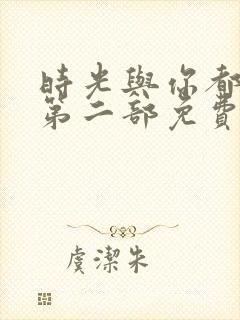 時光與你都
第二部免費
虞潔朱